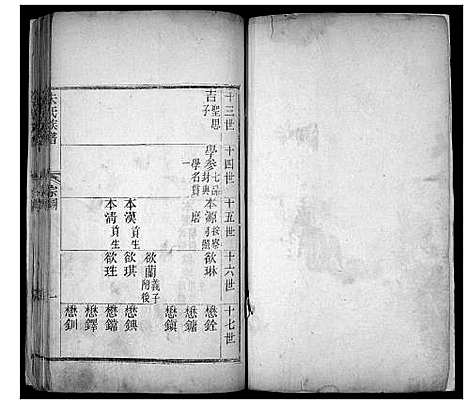 十三世
聖思
吉
子
十四世
學參 七品封典
學名貫
一
磨
十五世
本源
本漢 貢生
本清 貢生
十六世
欲琳
欲蘭 義子附後
欲琪
欲珄
十七世
懋銓
懋鏞
懋鎭
懋鐺
懋鐸
懋釧
氏族譜